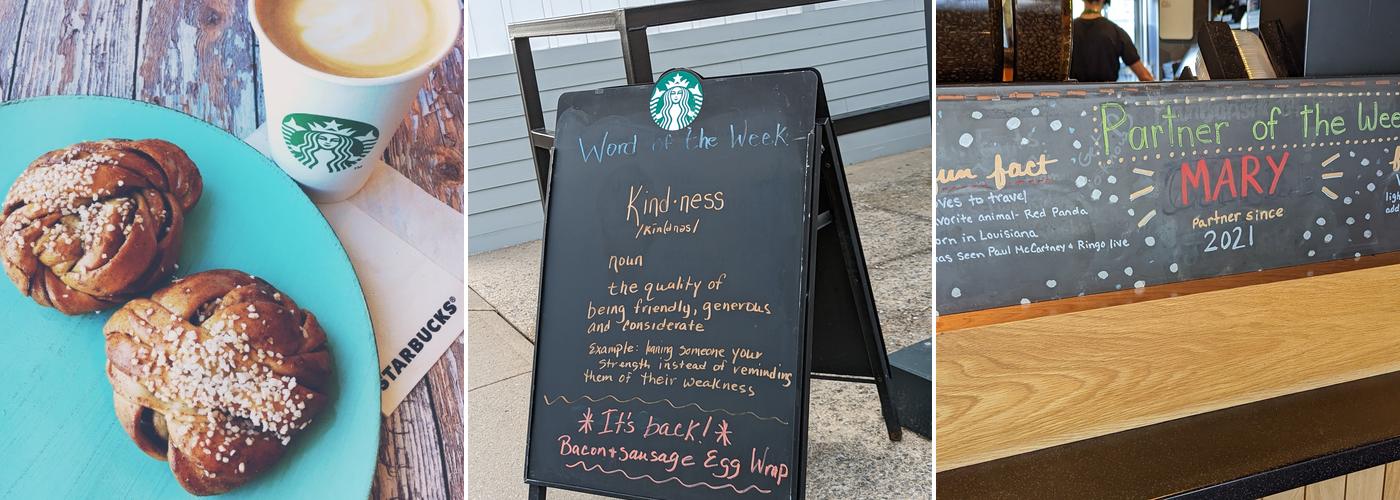 STARBUCKS®
Word of the Week
Kind·ness
/kin(d)nəs/
noun
the quality of
being friendly, generous
and considerate
Example: loaning someone your
strength instead of reminding
them of their weakness
*It's back!*
Bacon + Sausage Egg Wrap
Partner of the Wee
MARY
Partner since
2021
un fact
ves to travel
avorite animal- Red Panda
orn in Louisiana
as seen Paul McCartney & Ringo live